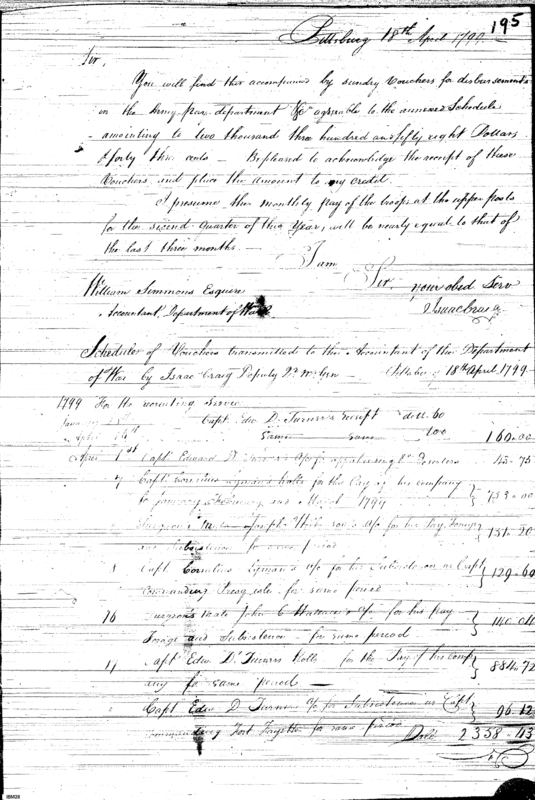 195
Pittsburg 18th April 1799
Sir,
You will find this accompanied by sundry Vouchers for disbursements
in the Army pay department &c agreable to the annexed Schedule
amointing to two thousand three hundred and fifty eight Dollars
& forty three cents — Be pleased to acknowledge the receipt of these
Vouchers and place the amount to my credit
I presume the monthly pay of the troops at the upper posts
for the second quarter of this Year, will be nearly equal to that of
the last three months. —
I am
Sir your obed Serv
William Simmons Esquire
Isaac Craig
Accountant Department of War
Schedule of Vouchers transmitted to the Accountant of the Department
of War by Isaac Craig Deputy Qr Mr Gen — Pittsburg 18th April 1799 —
1799 For the recruiting Service
Capt. Edw D. Turner's receipt doll. 60
April Same Same 100 160.00
April 1st Capt Edward D. Turner's for 45.75
7 Capt Cornelius Lyman's Rolls for the Pay of his company
for January February and March 1799
Surgeon's Mate Joseph for his Pay, Forage
and Subsistence for same period
8 Capt Cornelius Lyman's for his Subsistence as Capt 129.60
commanding Presqu isle for same period
16 Surgeon's Mate John C Wallace's for his pay
Forage and Subsistence — for same period
Capt Edwd D. Turner's Rolls for the Pay of his comp 884.72
any for same period —
Capt Edwd D. Turner for Subsistence as Capt 96.12
commanding Fort Fayette for same period
Dolls 2358.43
IBM28